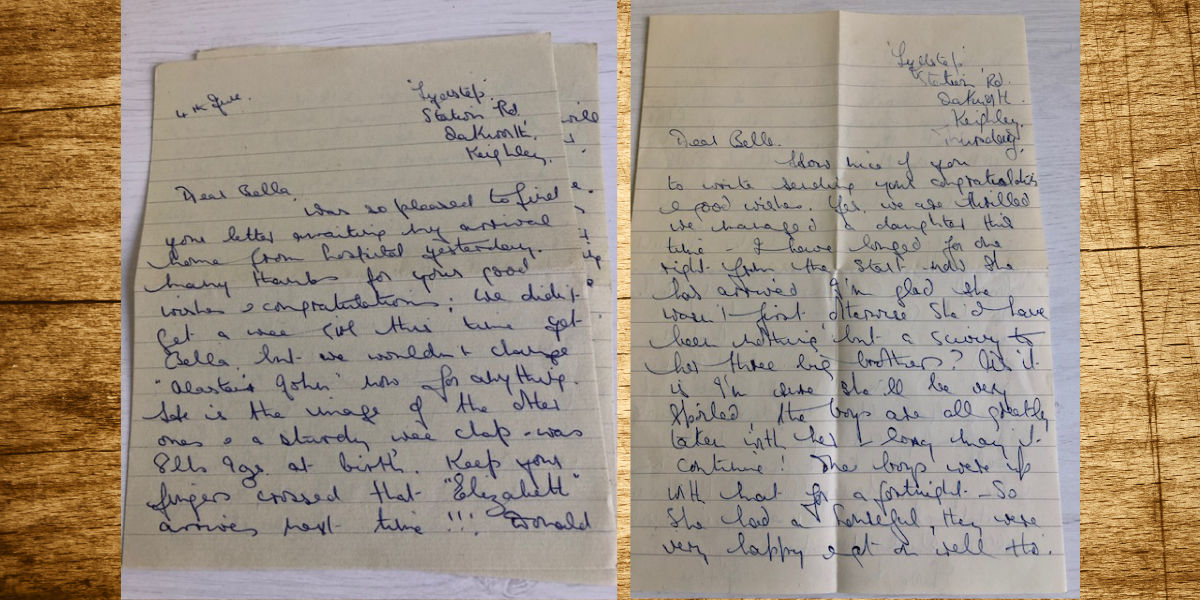 4th June.
'Lydstep'
Station Rd.
Oakworth.
Keighley.
Dear Bella,
was so pleased to find
your letter awaiting my arrival
home from hospital yesterday.
Many thanks for your good
wishes & congratulations. We didn't
get a wee girl this time yet
Bella, but we wouldn't change
"Alastair John" now for anything.
He is the image of the other
ones & a sturdy wee chap - was
8lbs 9ozs. at birth. Keep your
fingers crossed that "Elizabeth"
arrives next time !!! Donald
'Lydstep'
Station Rd.
Oakworth.
Keighley.
Thursday.
Dear Bella.
How nice of you
to write sending your congratulations
& good wishes. Yes, we are thrilled
we managed a daughter this
time - I have longed for one
right from the start - now she
has arrived I'm glad she
wasn't first otherwise she'd have
been nothing but a to
her three big brothers? As it
is I'm sure she'll be very
spoiled, the boys are all greatly
taken with her & long may it
continue! The boys were up
with for a fortnight - So
she had a handful, they were
very happy & got on well tho'.